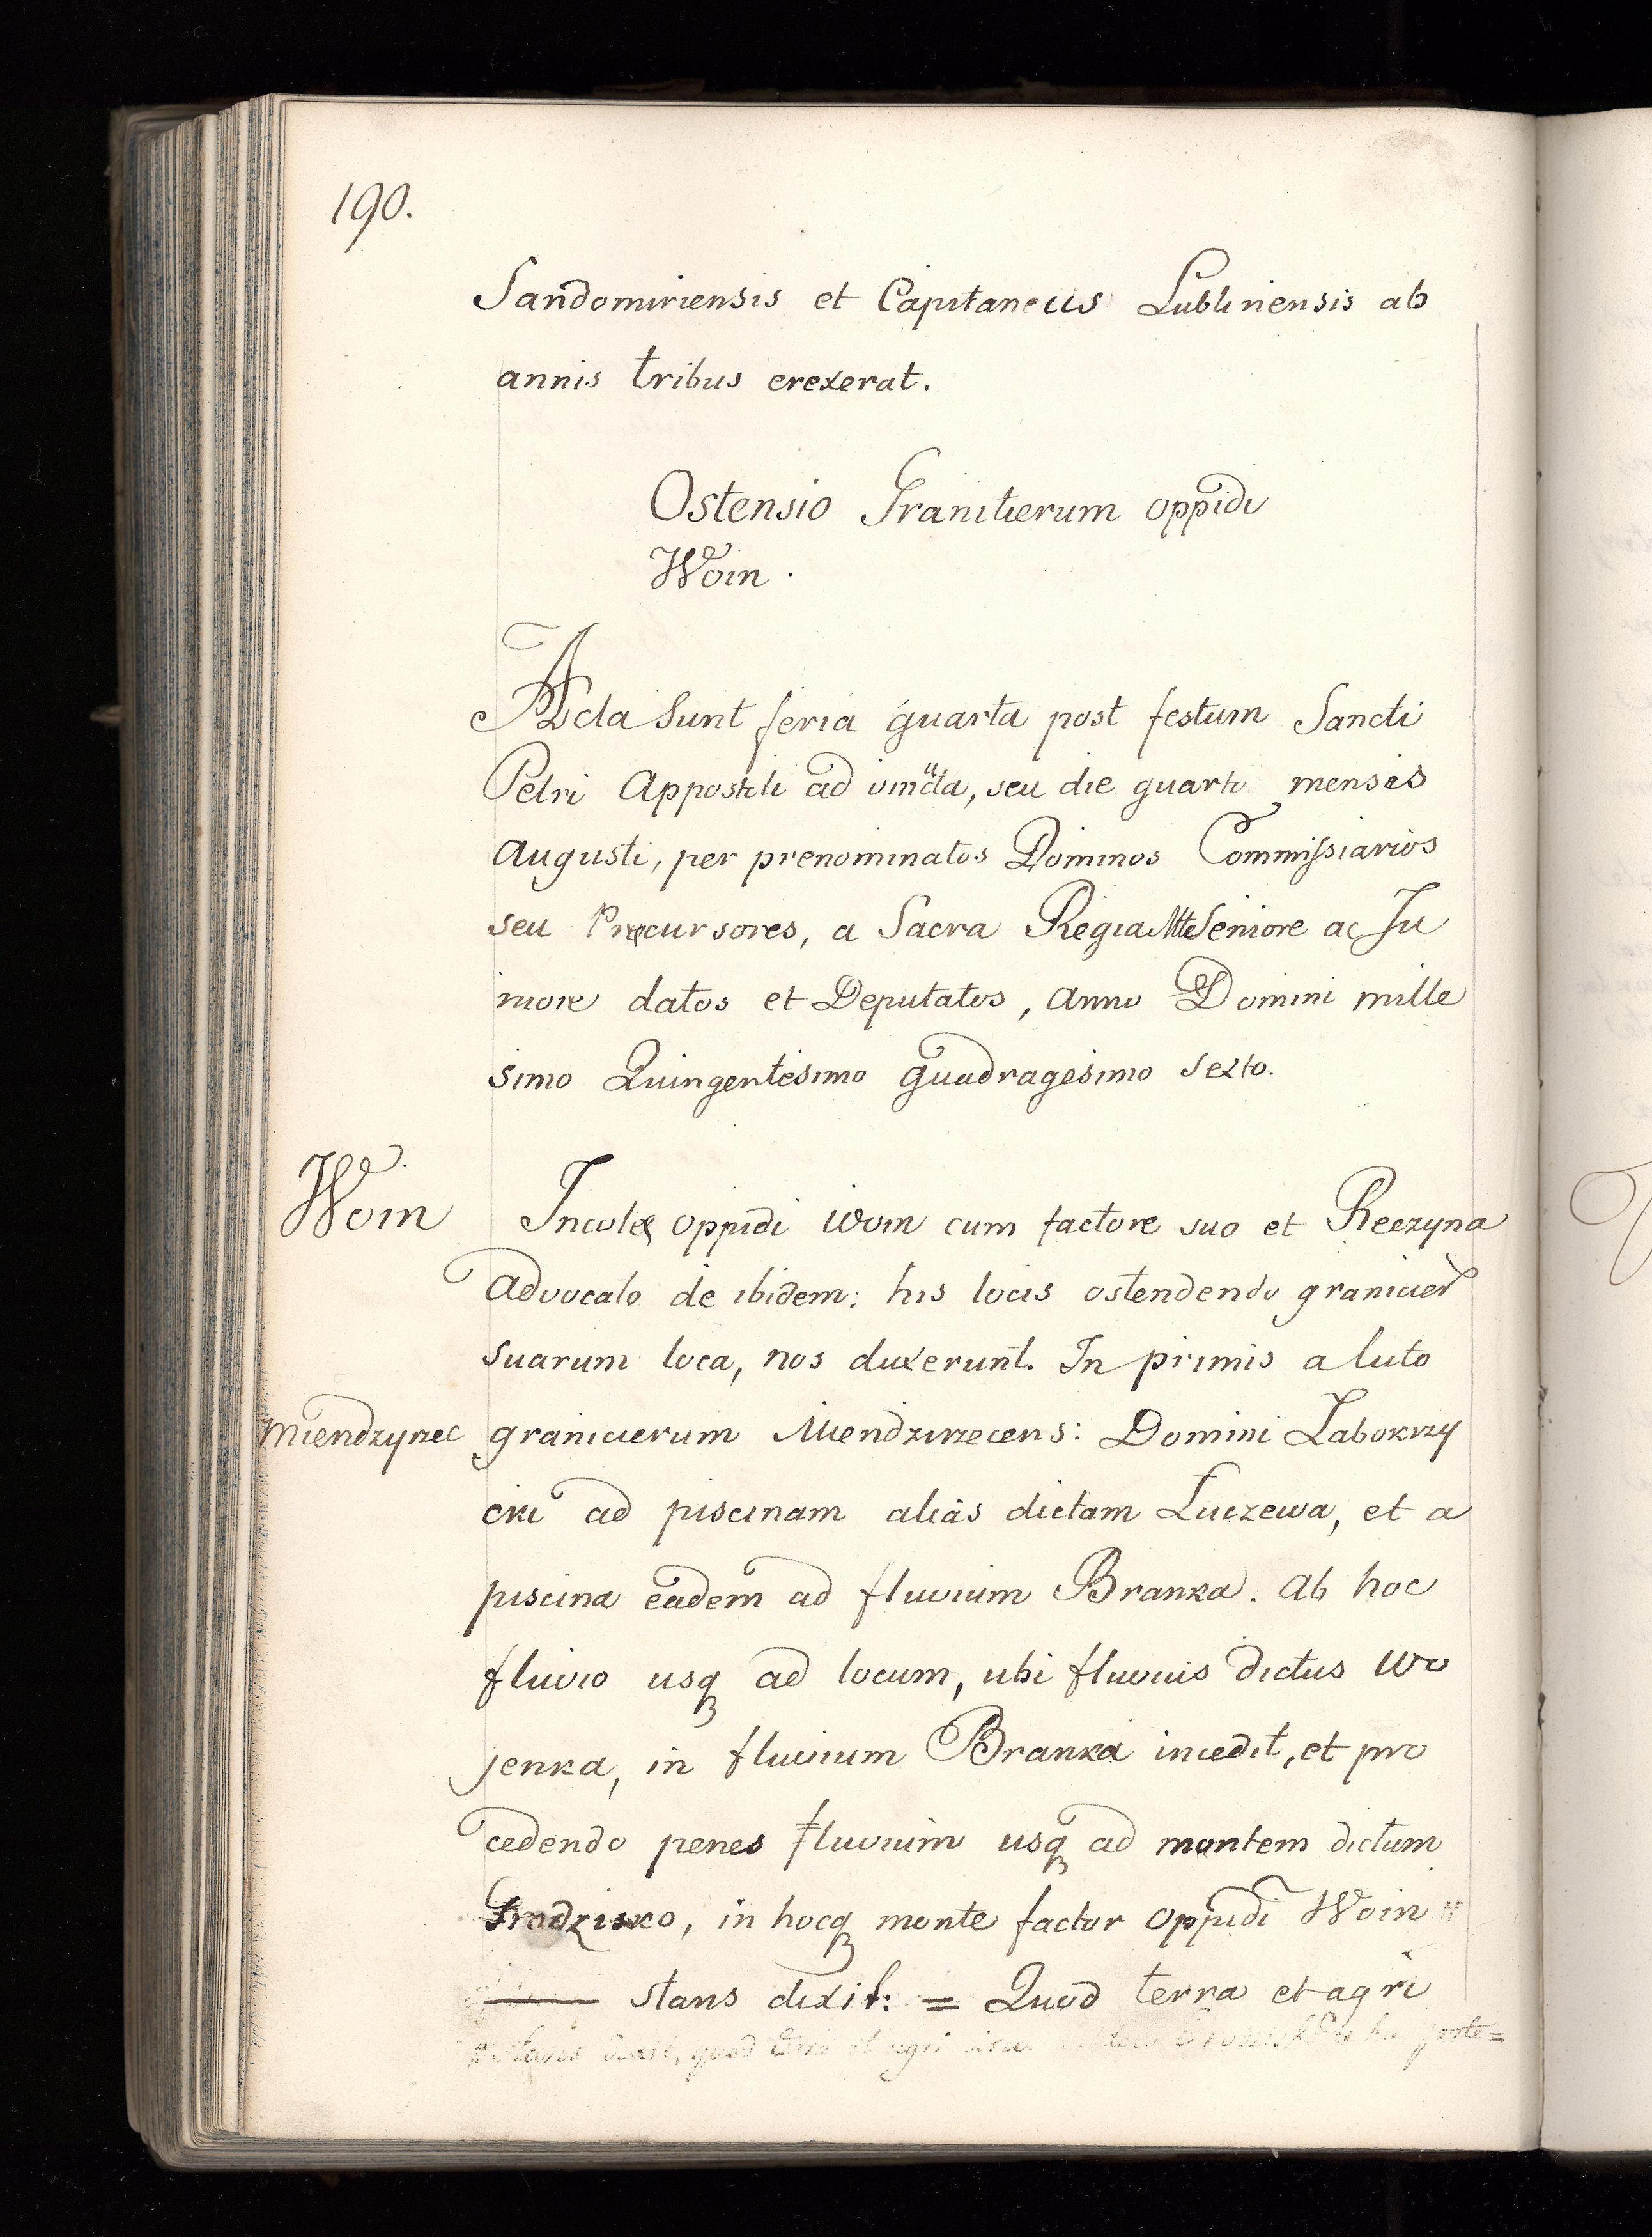 190.
Sandomiriensis et Capitaneus Lublinensis ab
annis tribus erexerat.
Ostensio Granitierum oppidi
Woin.
Acta Sunt feria quarta post festum Sancti
Petri Appostoli ad vincla, seu die quarto mensis
Augusti, per prenominatos Dominos Commissiarios
seu Precursores, a Sacra Regia Mtte Seniore ac Ju
niore datos et Deputatos, Anno Domini mille
simo Quingentesimo quadragesimo Sexto.
Woin
Incolæ oppidi Woin cum factore suo et Reczyna
advocato de ibidem: his locis ostendendo granicier
suarum loca, nos duxerunt. In primis a luto
Miendzyrzec
granicierum Miendzirzecens: Domini Zabokrzy
cki ad piscinam alias dictam Luczewa, et a
piscina eadem ad fluvium Branka. Ab hoc
fluvio usq ad locum, ubi fluvius dictus Wo
jenka, in fluvium Branka incedit, et pro
cedendo penes fluvium usq ad montem dictum
Grodzisko, in hocq monte factor oppidi Woin #
stans dixit: = Quod terra et agri
# stans dixit, quod terra et agri